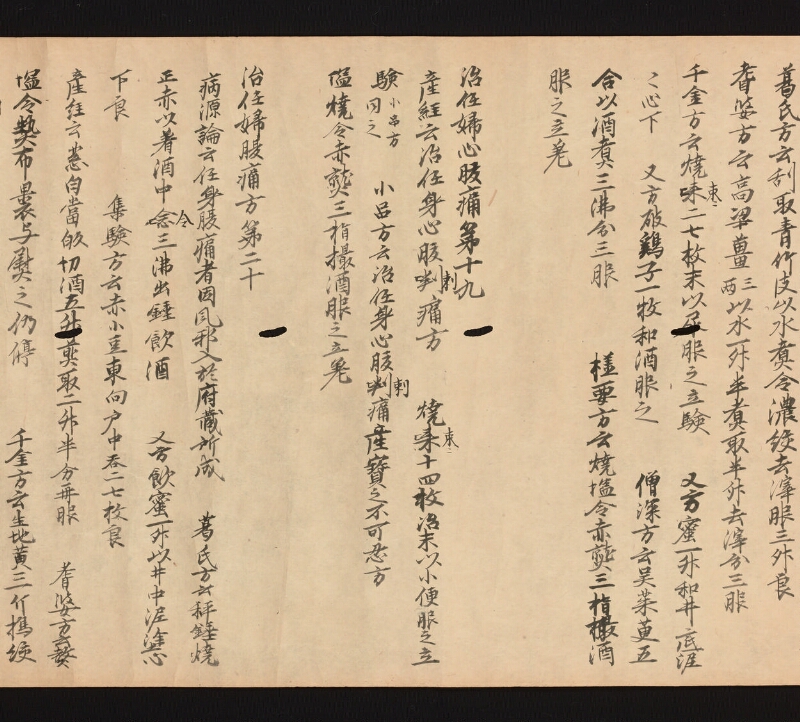 葛氏方云刮取青竹皮以水煮令濃絞去滓服三升良
耆婆方云高梁薑三兩以水一升半煮取半升去滓分三服
千金方云燒棗二七枚末以尿服之立験 又方蜜一升和井底泥
〻心下 又方破鶏子一牧和酒服之 僧深方云吴茱萸五
合以酒煮三沸分三服 極要方云燒塩令赤熱三指撮酒
服之立差
治任婦心腹痛第十九
産經云治任身心腹刺痛方 燒棗十四枚冶末以小便服之立
験 小品方同之 小品方云治任身心腹刺痛 産寶之不可忍方
塩燒令赤熱三指撮酒服之立差
治任婦腹痛方第二十
病源論云任身腹痛者因風邪入於府蔵所成 葛氏方云秤錘燒
正赤以着酒中令三沸出錘飲酒 又方飲蜜一升以井中泥塗心
下良 集験方云赤小豆東向户中吞二七枚良
産經云葱白當歸切酒五升煎取二升半分再服 耆婆方云熬
塩令熱布裹与熨之仍停 千金方云生地黄三斤擣絞